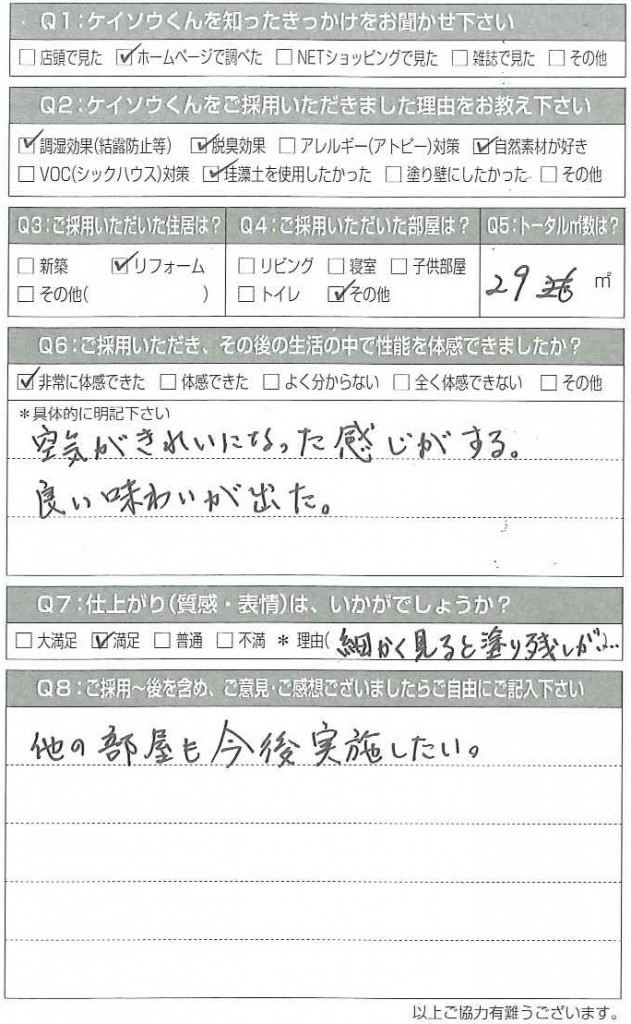 Q1:ケイソウくんを知ったきっかけをお聞かせ下さい
□店頭で見た ☑ホームページで調べた □NETショッピングで見た □雑誌で見た □その他
Q2:ケイソウくんをご採用いただきました理由をお教え下さい
☑調湿効果(結露防止等) ☑脱臭効果 □アレルギー(アトピー)対策 ☑自然素材が好き
□VOC(シックハウス)対策 ☑珪藻土を使用したかった □塗り壁にしたかった □その他
Q3:ご採用いただいた住居は? Q4:ご採用いただいた部屋は? Q5:トータル㎡数は?
□新築 ☑リフォーム □リビング □寝室 □子供部屋 29 ㎡
□その他( ) □トイレ ☑その他
Q6:ご採用いただき、その後の生活の中で性能を体感できましたか?
☑非常に体感できた □体感できた □よく分からない □全く体感できない □その他
*具体的に明記下さい
空気がきれいになった感じがする。
良い味わいが出た。
Q7:仕上がり(質感・表情)は、いかがでしょうか?
□大満足 ☑満足 □普通 □不満 * 理由(細かく見ると塗り残しが
Q8:ご採用～後を含め、ご意見・ご感想ございましたらご自由にご記入下さい
他の部屋も今後実施したい。
以上ご協力有難うございます。